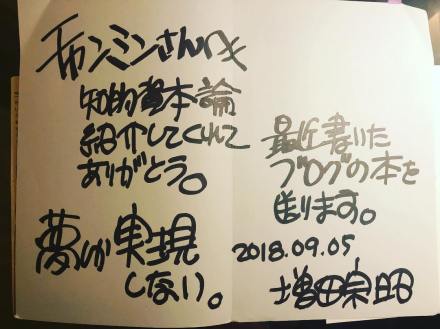 チャンミンさんへ
知的資本論
紹介してくれて
ありがとう。
夢しか実現
しない。
最近書いた
ブログの本を
送ります。
2018.09.05
増田宗昭